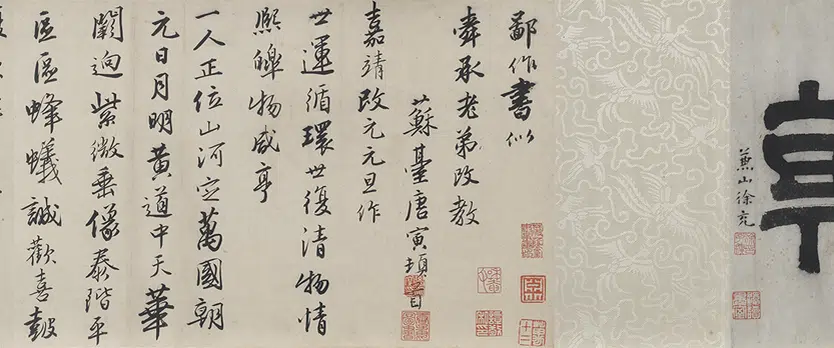 亨
燕山徐充
鄙作書似
舜承老弟改教
蘇臺唐寅頓首
嘉靖改元元旦作
世運循環世復清物情
熙皞物咸亨
一人正位山河定萬國朝
元日月明黃道中天華
闕迥紫微垂像泰階平
區區蜂蟻誠歡喜鼓